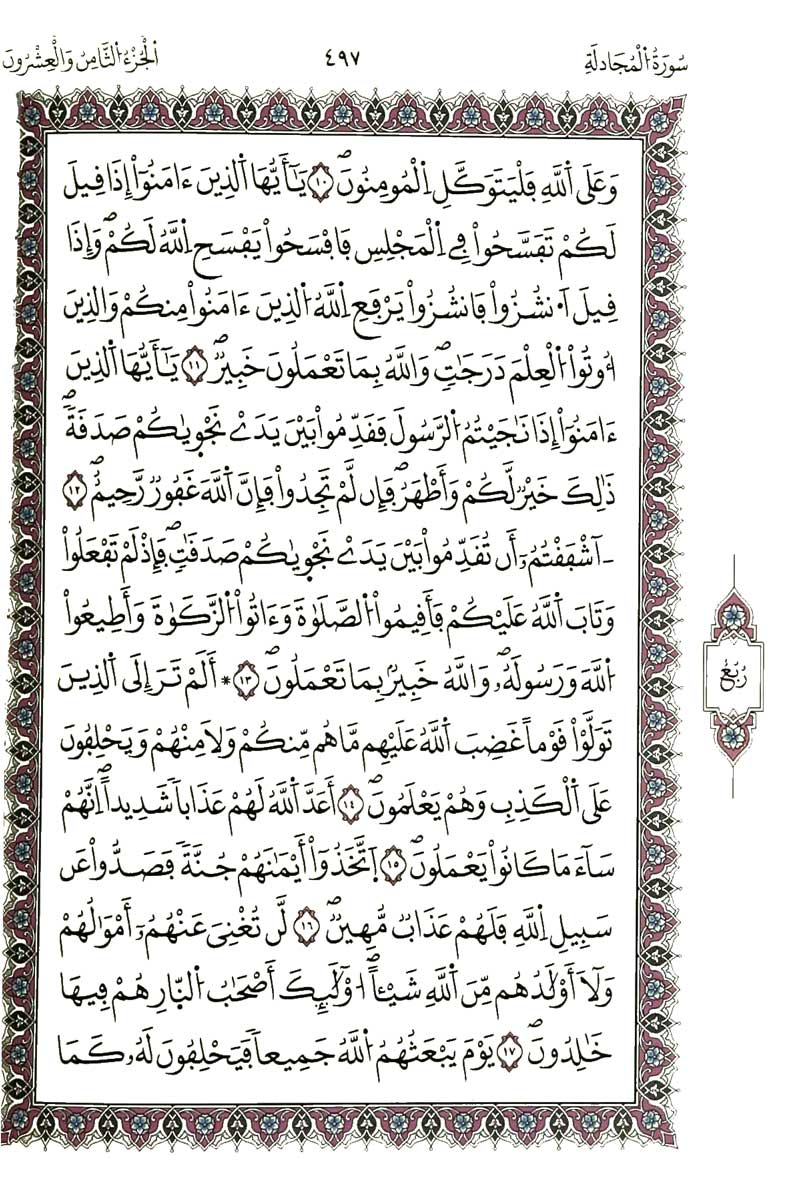 سُورَةُ الْمُجَادلَةِ
٤٩٧
الْجُزْءُ الثَّامِنُ وَالْعِشْرُونَ
وَعَلَى اَ۬للَّهِ فَلْيَتَوَكَّلِ اِ۬لْمُومِنُونَۖ ۝١٠ يَٰٓأَيُّهَا اَ۬لذِينَ ءَامَنُوٓاْ إِذَا قِيلَ
لَكُمْ تَفَسَّحُواْ فِے اِ۬لْمَجْلِسِ فَافْسَحُواْ يَفْسَحِ اِ۬للَّهُ لَكُمْۖ وَإِذَا
قِيلَ اَ۟نشُزُواْ فَانشُزُواْ يَرْفَعِ اِ۬للَّهُ اُ۬لذِينَ ءَامَنُواْ مِنكُمْ وَالذِينَ
أُوتُواْ اُ۬لْعِلْمَ دَرَجَٰتٖۖ وَاللَّهُ بِمَا تَعْمَلُونَ خَبِيرٞۖ ۝١١ يَٰٓأَيُّهَا اَ۬لذِينَ
ءَامَنُوٓاْ إِذَا نَٰجَيْتُمُ اُ۬لرَّسُولَ فَقَدِّمُواْ بَيْنَ يَدَےْ نَجْو۪يٰكُمْ صَدَقَةٗۖ
ذَٰلِكَ خَيْرٞ لَّكُمْ وَأَطْهَرُۖ فَإِن لَّمْ تَجِدُواْ فَإِنَّ اَ۬للَّهَ غَفُورٞ رَّحِيمٌۖ ۝١٢
ءَآشْفَقْتُمُۥٓ أَن تُقَدِّمُواْ بَيْنَ يَدَےْ نَجْو۪يٰكُمْ صَدَقَٰتٖۖ فَإِذْ لَمْ تَفْعَلُواْ
وَتَابَ اَ۬للَّهُ عَلَيْكُمْ فَأَقِيمُواْ اُ۬لصَّلَوٰةَ وَءَاتُواْ اُ۬لزَّكَوٰةَ وَأَطِيعُواْ
اُ۬للَّهَ وَرَسُولَهُۥۖ وَاللَّهُ خَبِيرُۢ بِمَا تَعْمَلُونَۖ ۝١٣ * أَلَمْ تَرَ إِلَى اَ۬لذِينَ
تَوَلَّوْاْ قَوْماً غَضِبَ اَ۬للَّهُ عَلَيْهِم مَّا هُم مِّنكُمْ وَلَا مِنْهُمْ وَيَحْلِفُونَ
عَلَى اَ۬لْكَذِبِ وَهُمْ يَعْلَمُونَۖ ۝١٤ أَعَدَّ اَ۬للَّهُ لَهُمْ عَذَاباٗ شَدِيداًۖ اِنَّهُمْ
سَآءَ مَا كَانُواْ يَعْمَلُونَۖ ۝١٥ اَ۪تَّخَذُوٓاْ أَيْمَٰنَهُمْ جُنَّةٗ فَصَدُّواْ عَن
سَبِيلِ اِ۬للَّهِ فَلَهُمْ عَذَابٞ مُّهِينٞۖ ۝١٦ لَّن تُغْنِيَ عَنْهُمُۥٓ أَمْوَٰلُهُمْ
وَلَآ أَوْلَٰدُهُم مِّنَ اَ۬للَّهِ شَيْـٔاًۖ اُوْلَٰٓئِكَ أَصْحَٰبُ اُ۬لنّ۪ارِ هُمْ فِيهَا
خَٰلِدُونَۖ ۝١٧ يَوْمَ يَبْعَثُهُمُ اُ۬للَّهُ جَمِيعاٗ فَيَحْلِفُونَ لَهُۥ كَمَا
رُبُعُ